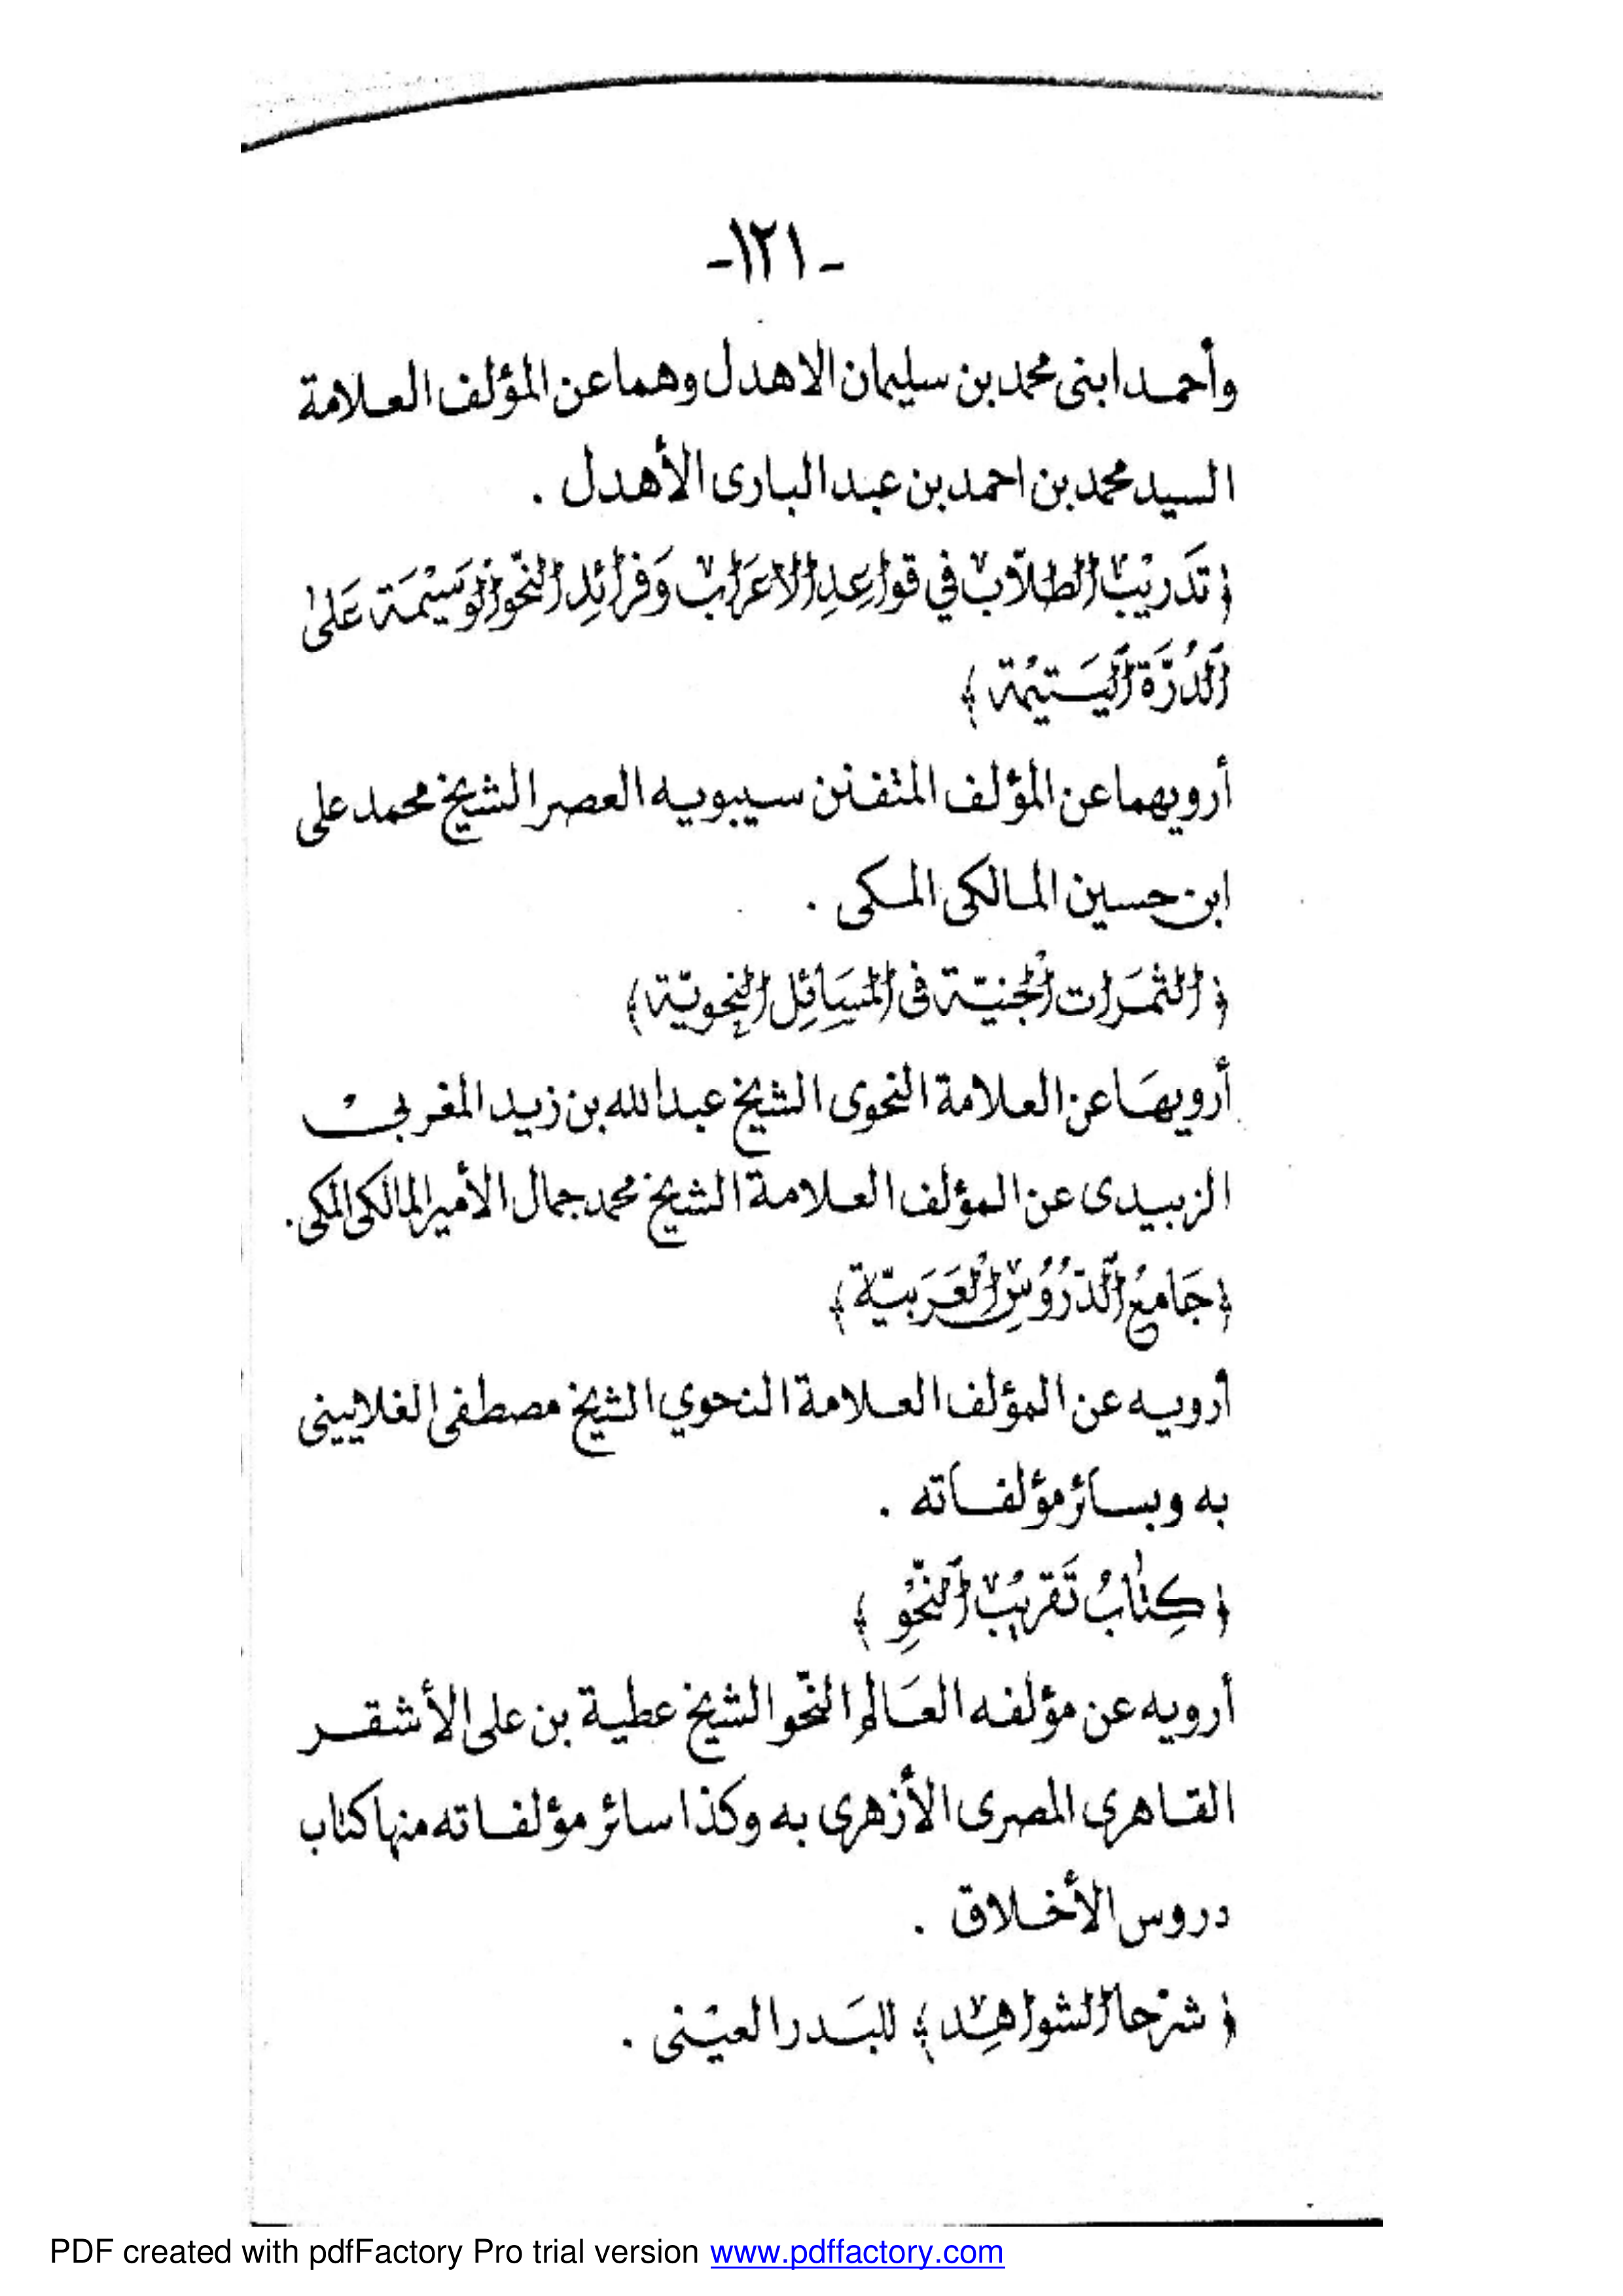 -١٢١-
وأحمد ابنى محمد بن سليمان الاهدل وهما عن المؤلف العلامة
السيد محمد بن احمد بن عبد البارى الأهدل .
﴿ تَدريْبُ الطلّابْ في قواعِدِ الاعرَابْ وَفرائِدِ النّحو الوَسيْمَة عَلىٰ
الدُرَّة اليَستيمُة ﴾
أرويهما عن المؤلف المتفنن سيبويه العصر الشيخ محمد على
ابن حسين المالكى المكى .
﴿ الثمَرات الجنيّة فى المسَائِل النحويّة ﴾
أرويهَا عن العلامة النحوى الشيخ عبد الله بن زيد المغربى
الزبيدى عن المؤلف العلامة الشيخ محمد جمال الأمير المالكى المكى .
﴿ جَامعُ الدّرُوُسْ العَرَبيّة ﴾
أرويه عن المؤلف العلامة النحوي الشيخ مصطفى الغلايينى
به وبسائر مؤلفاته .
﴿ كِتٰابُ تَقريُبْ النّحْوِ ﴾
أرويه عن مؤلفه العَالم النّحو الشيخ عطية بن على الأشقر
القاهرى المصرى الأزهرى به وكذا سائر مؤلفاته منها كتاب
دروس الأخلاق .
﴿ شرْحا الشواهِدْ ﴾ للبَدر العيْنى .
PDF created with pdfFactory Pro trial version www.pdffactory.com